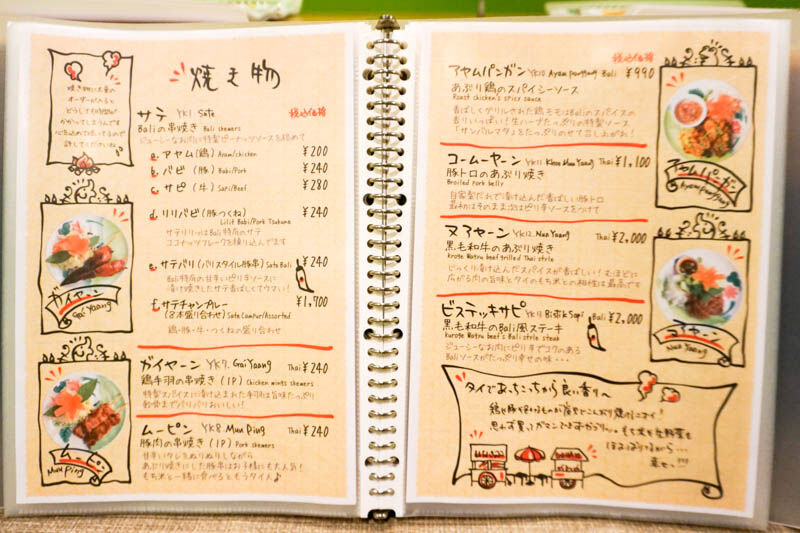 焼き物
税込価格
サテ YK1 Sate
Baliの串焼き Bali skewers
ジューシーなお肉に特製ピーナッツソースを絡めて
a. アヤム(鶏) Ayam/chicken ¥200
b. バビ (豚) Babi/Pork ¥240
c. サピ (牛) Sapi/Beef ¥280
d. リリバビ(豚つくね) ¥240
Lilit Babi/Pork Tsukune
サテリリッはBali特有のサテ
ココナッツフレークを練り込んでます
e. サテバリ(バリスタイル豚串) Sate Bali ¥240
Bali特有の甘辛いピリ辛ソースに
漬け焼きしたサテ香ばしくてウマい!
f. サテチャンプルー ¥1,700
(8本盛り合わせ) Sate Campur/Assorted
鶏・豚・牛・つくねの盛り合わせ
ガイヤーン YK7. Gai Yaang Thai ¥240
鶏手羽の串焼き (1P) Chicken wings skewers
特製スパイスに漬け込まれた手羽は旨味たっぷり
軟骨までバリバリおいしい!
ムーピン YK8. Muu Ping Thai ¥240
豚肉の串焼き (1P) Pork skewers
甘辛いタレをぬりぬりしながら
あぶり焼きにした豚串はお子様にも大人気!
もち米と一緒に食べるともうタイ人♪
ガイヤーン
Gai Yaang
ムーピン
Muu Ping
税込価格
アヤムパンガン YK10 Ayam panggang Bali ¥990
あぶり鶏のスパイシーソース
Roast chicken's spicy sauce
香ばしくグリルされた鶏モモはBaliのスパイスの
香りいっぱい!生ハーブたっぷりの特製ソース
「サンバルマタ」をたっぷりのせて召し上がれ!
コームーヤーン YK11 Khoo Muu Yaang Thai ¥1,100
豚トロのあぶり焼き
Broiled pork belly
自家製だれで漬け込んだ香ばしい豚トロ
最初はそのまま次はピリ辛ソースをつけて
ヌアヤーン YK12. Nua Yaang Thai ¥2,000
黒毛和牛のあぶり焼き
kuroge Wagyu beef grilled Thai style
じっくり漬け込んだスパイスが香ばしい!かむほどに
広がる肉の旨味とタイのもち米との相性は最高です
ビステッキサピ Bistik Sapi Bali ¥2,000
黒毛和牛のBali風ステーキ
kuroge Wagyu beef's Bali style steak
ジューシーなお肉にピリ辛でコクのある
Baliソースがたっぷり幸せの味・・・
アヤムパンガン
Ayam panggang
ヌアヤーン
Nua Yaang
タイであっちこっちから良い香り〜